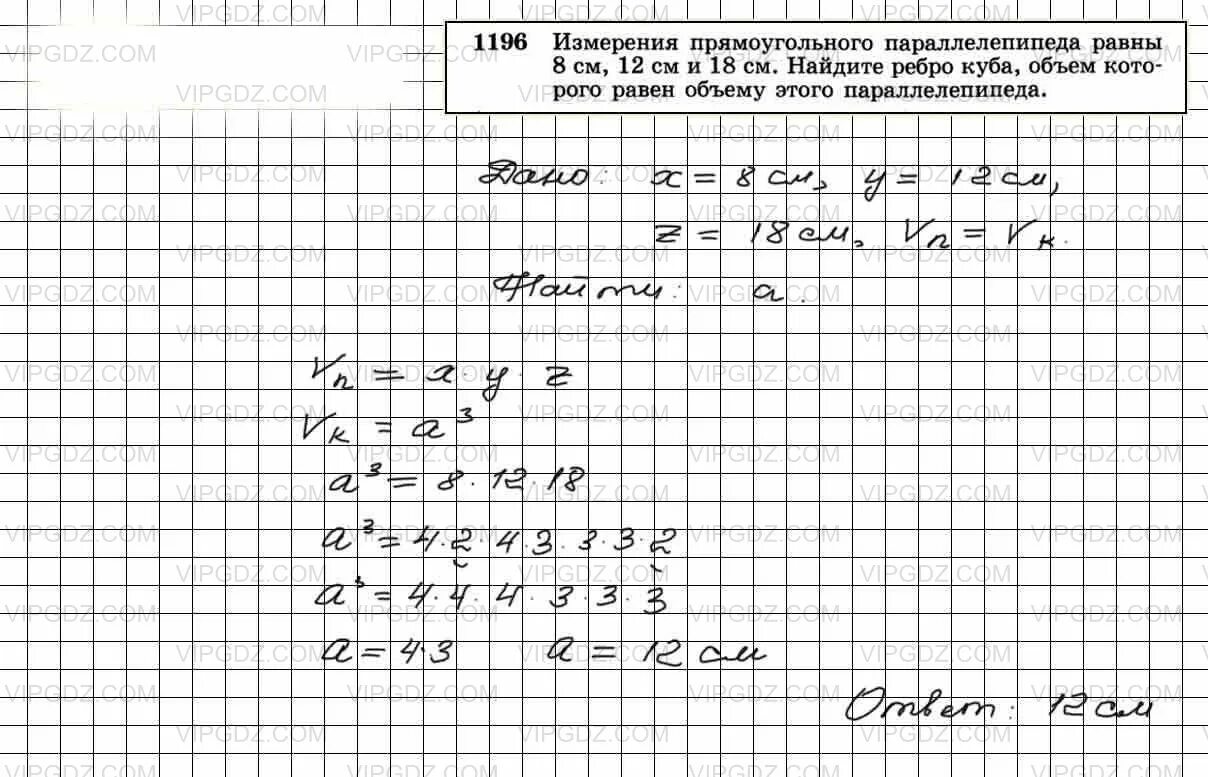 1196 Измерения прямоугольного параллелепипеда равны
8 см, 12 см и 18 см. Найдите ребро куба, объем кото-
рого равен объему этого параллелепипеда.
Дано: x = 8 см, y = 12 см,
z = 18 см, Vп = Vк.
Найти: a.
Vп = x · y · z
Vк = a³
a³ = 8 · 12 · 18
a³ = 4 · 2 · 4 · 3 · 3 · 3 · 2
a³ = 4 · 4 · 4 · 3 · 3 · 3
a = 4·3 a = 12 см
Ответ: 12 см
VIPGDZ.COM